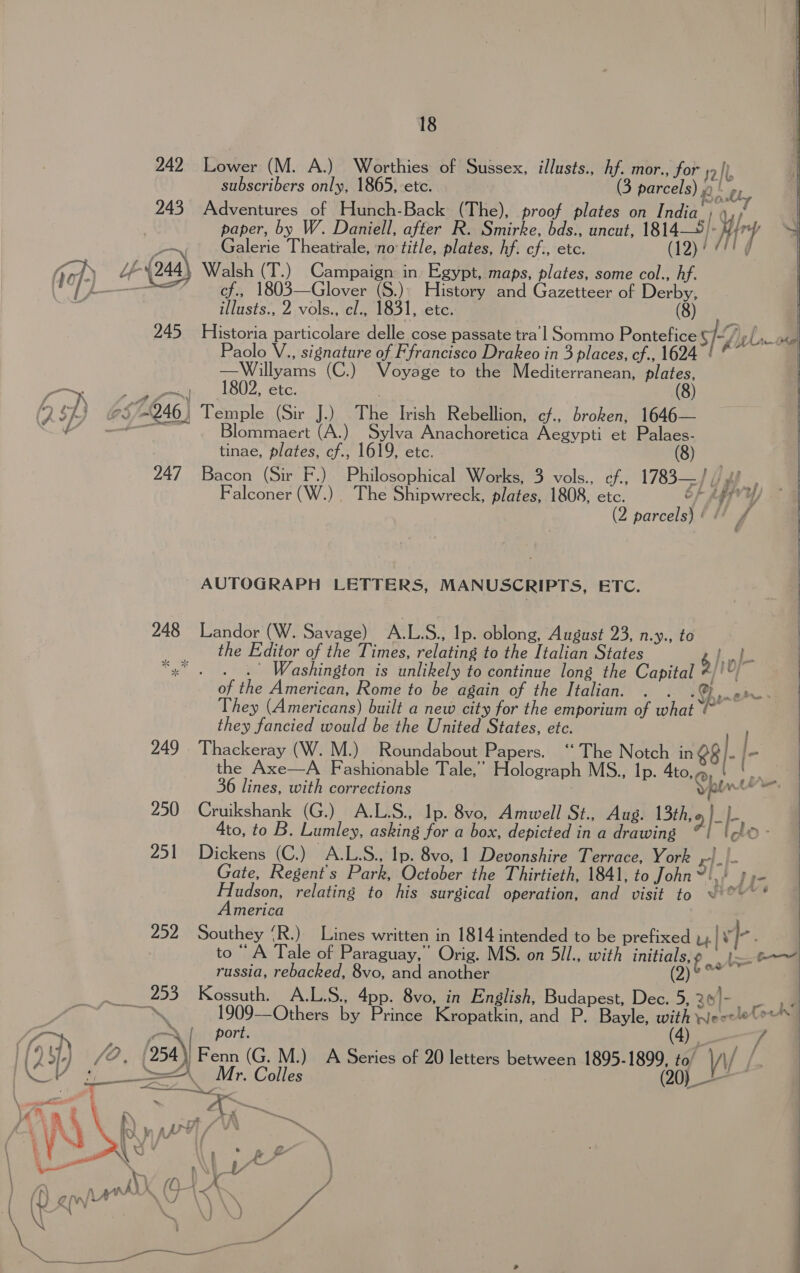 18
242 Lower (M. A.) Worthies of Sussex, illusts., hf. mor., for
subscribers only, 1865, etc. (3 parcels)
243 Adventures of Hunch-Back (The), proof plates on India
paper, by W. Daniell, after R. Smirke, bds., uncut, 1814—
Galerie Theatrale, no title, plates, hf. cf., etc. (12)
244 Walsh (T.) Campaign in Egypt, maps, plates, some col., hf.
cf., 1803—Glover (S.) History and Gazetteer of Derby,
illusts., 2 vols., cl., 1831, etc. (8)
245 Historia particolare delle cose passate tra'l Sommo Pontefice
Paolo V., signature of Ffrancisco Drakeo in 3 places, cf., 1624
—Willyams (C.) Voyage to the Mediterranean, plates,
1802, etc. (8)
246 Temple (Sir J.) The Irish Rebellion, cf., broken, 1646—
Blommaert (A.) Sylva Anachoretica Aegypti et Palaes-
tinae, plates, cf., 1619, etc. (8)
247 Bacon (Sir F.) Philosophical Works, 3 vols., cf., 1783—
Falconer (W.) The Shipwreck, plates, 1808, etc.
(2 parcels)
AUTOGRAPH LETTERS, MANUSCRIPTS, ETC.
248 Landor (W. Savage) A.L.S., 1p. oblong, August 23, n.y., to
the Editor of the Times, relating to the Italian States
*** . . . Washington is unlikely to continue long the Capital
of the American, Rome to be again of the Italian. . . .
They (Americans) built a new city for the emporium of what
they fancied would be the United States, etc.
249 Thackeray (W. M.) Roundabout Papers. "The Notch in
the Axe—A Fashionable Tale," Holograph MS., 1p. 4to,
36 lines, with corrections
250 Cruikshank (G.) A.L.S., 1p. 8vo, Amwell St., Aug. 13th,
4to, to B. Lumley, asking for a box, depicted in a drawing
251 Dickens (C.) A.L.S., 1p. 8vo, 1 Devonshire Terrace, York
Gate, Regent's Park, October the Thirtieth, 1841, to John
Hudson, relating to his surgical operation, and visit to
America
252 Southey (R.) Lines written in 1814 intended to be prefixed
to "A Tale of Paraguay," Orig. MS. on 5ll., with initials,
russia, rebacked, 8vo, and another (2)
253 Kossuth. A.L.S., 4pp. 8vo, in English, Budapest, Dec. 5,
1909—Others by Prince Kropatkin, and P. Bayle, with
port. (4)
254 Fenn (G. M.) A Series of 20 letters between 1895-1899, to
Mr. Colles (20)